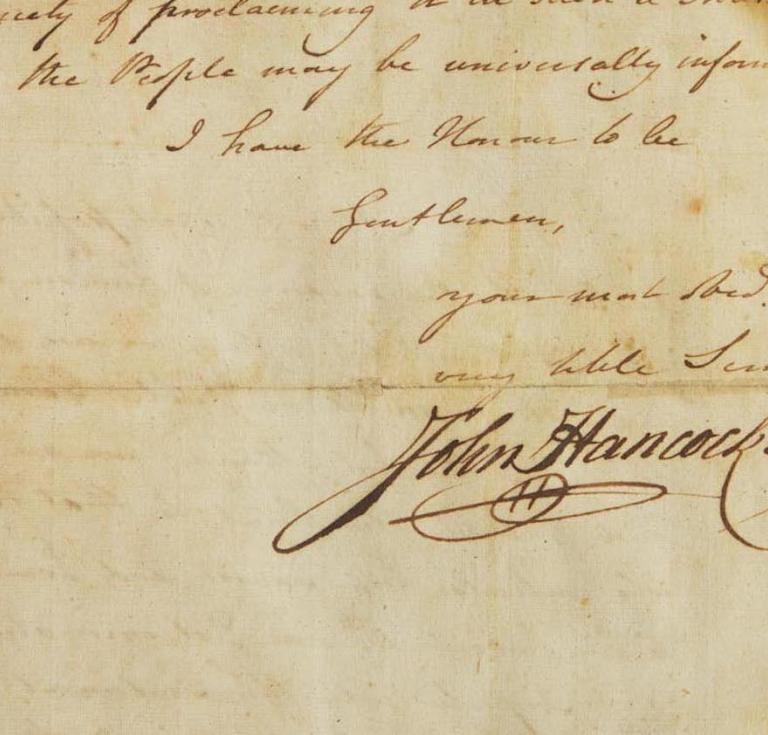 of proclaiming it in such a
the People may be universally inform
I have the Honour to be
Gentlemen,
your most Obed.
very hble Ser
John Hancock